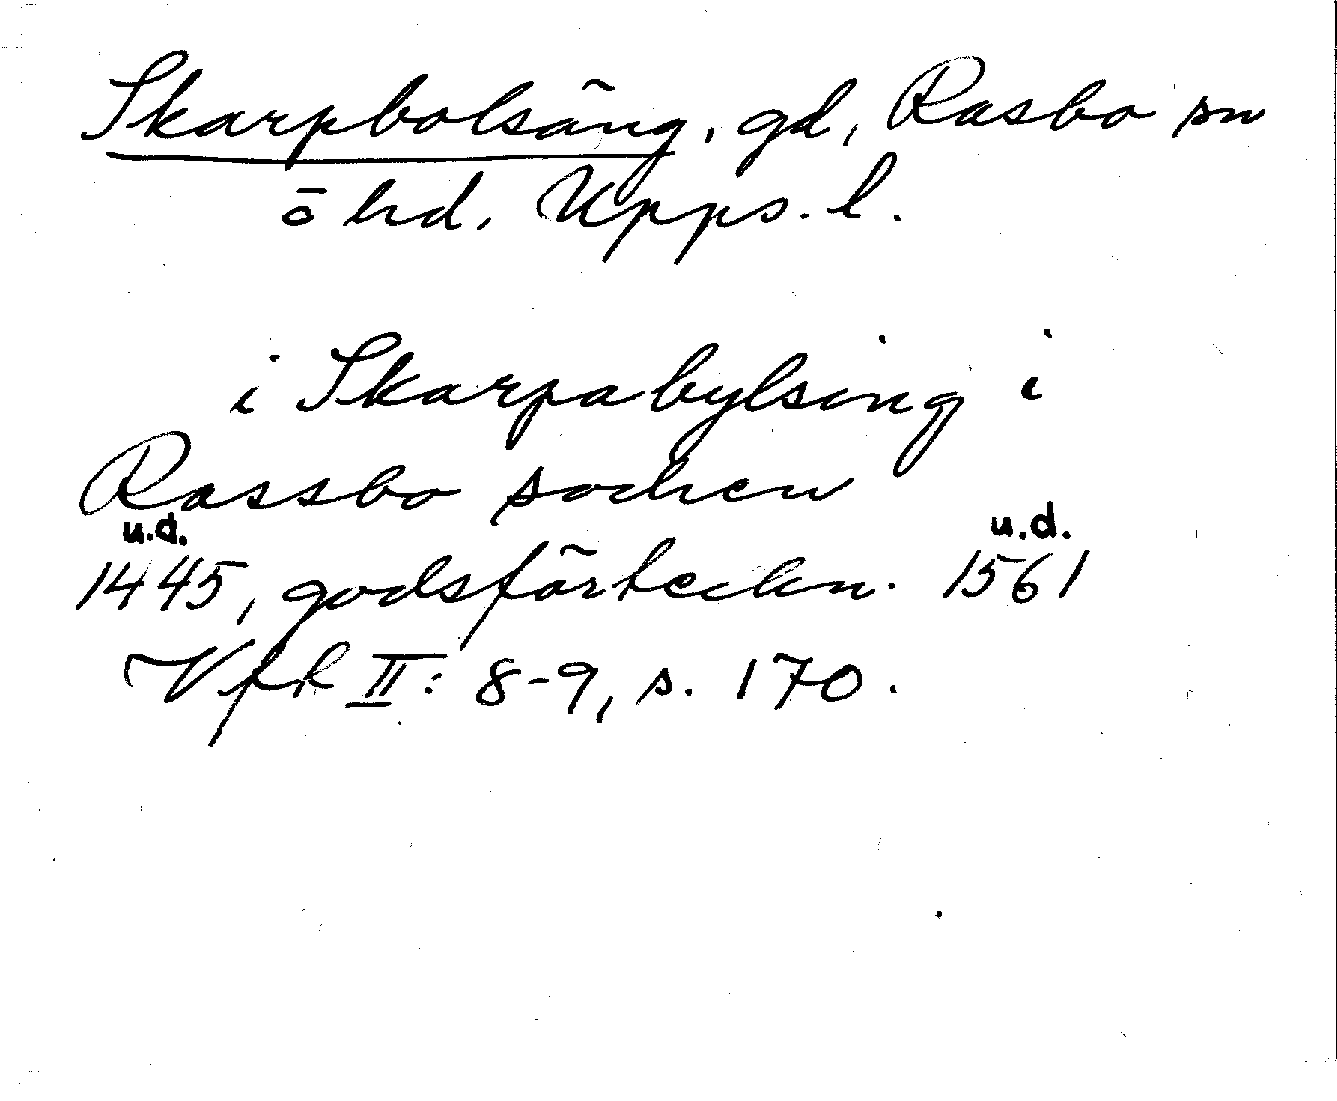 Skarpbolsäng, gd, Rasbo sn
ö hd, Upps. l.
i Skarpabylsing i
Rassbo sochen
u.d. u.d.
1445, godsförteckn. 1561
Vfr II: 8-9, s. 170.